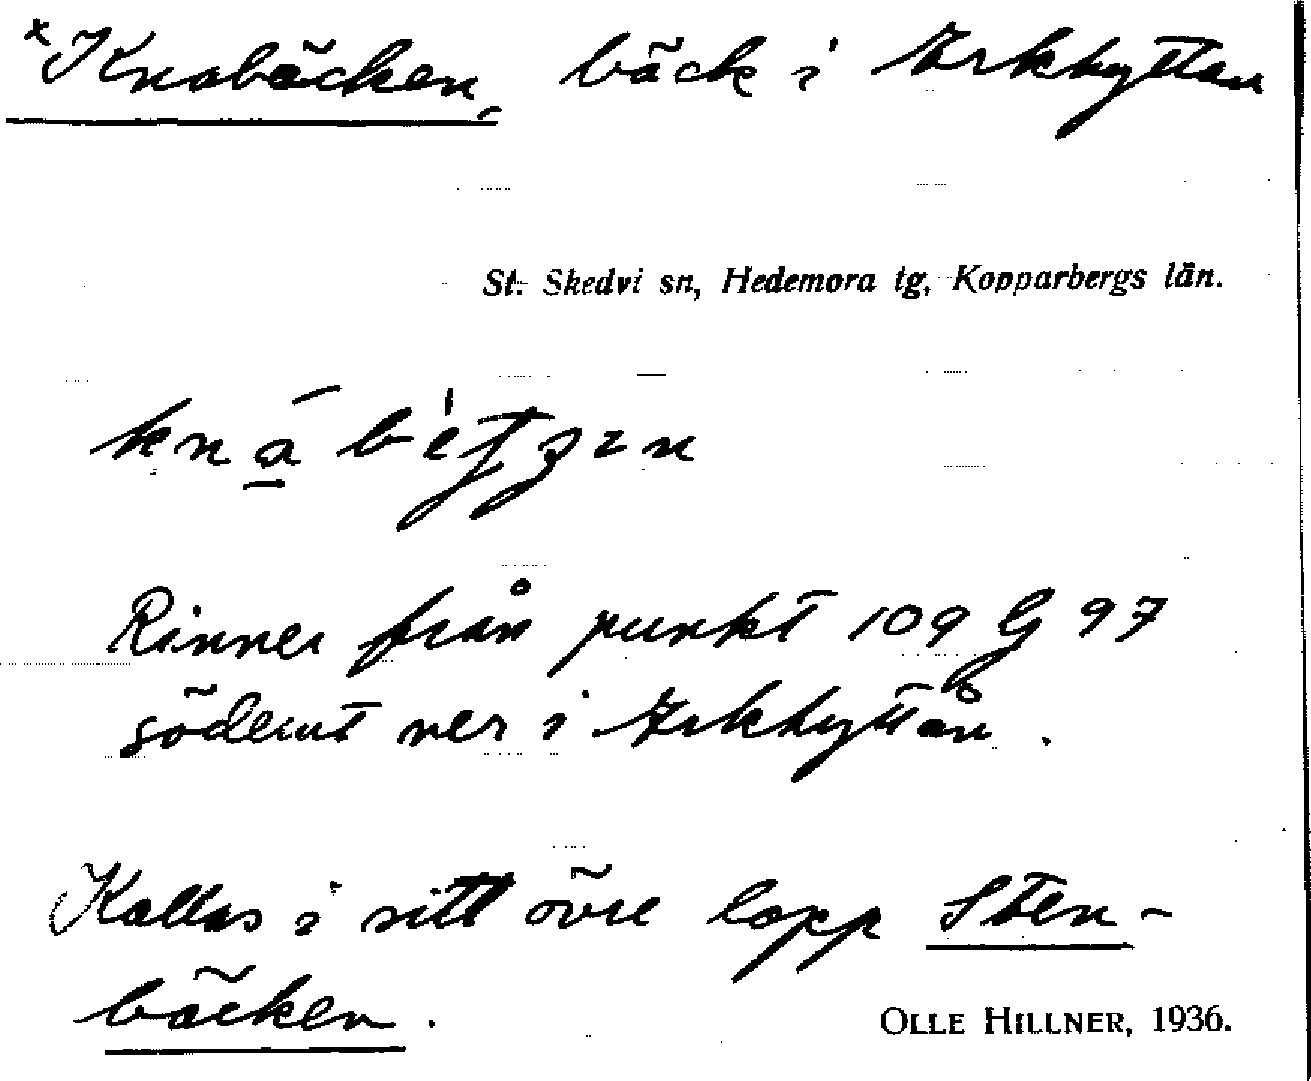 *Knabäcken, bäck i Arkhyttan
St. Skedvi sn, Hedemora tg, Kopparbergs län.
Rinner från punkt 109 G 97
söderut ner i Arkhyttån.
Kallas i sitt övre lopp Sten-
bäcken.
OLLE HILLNER, 1936.